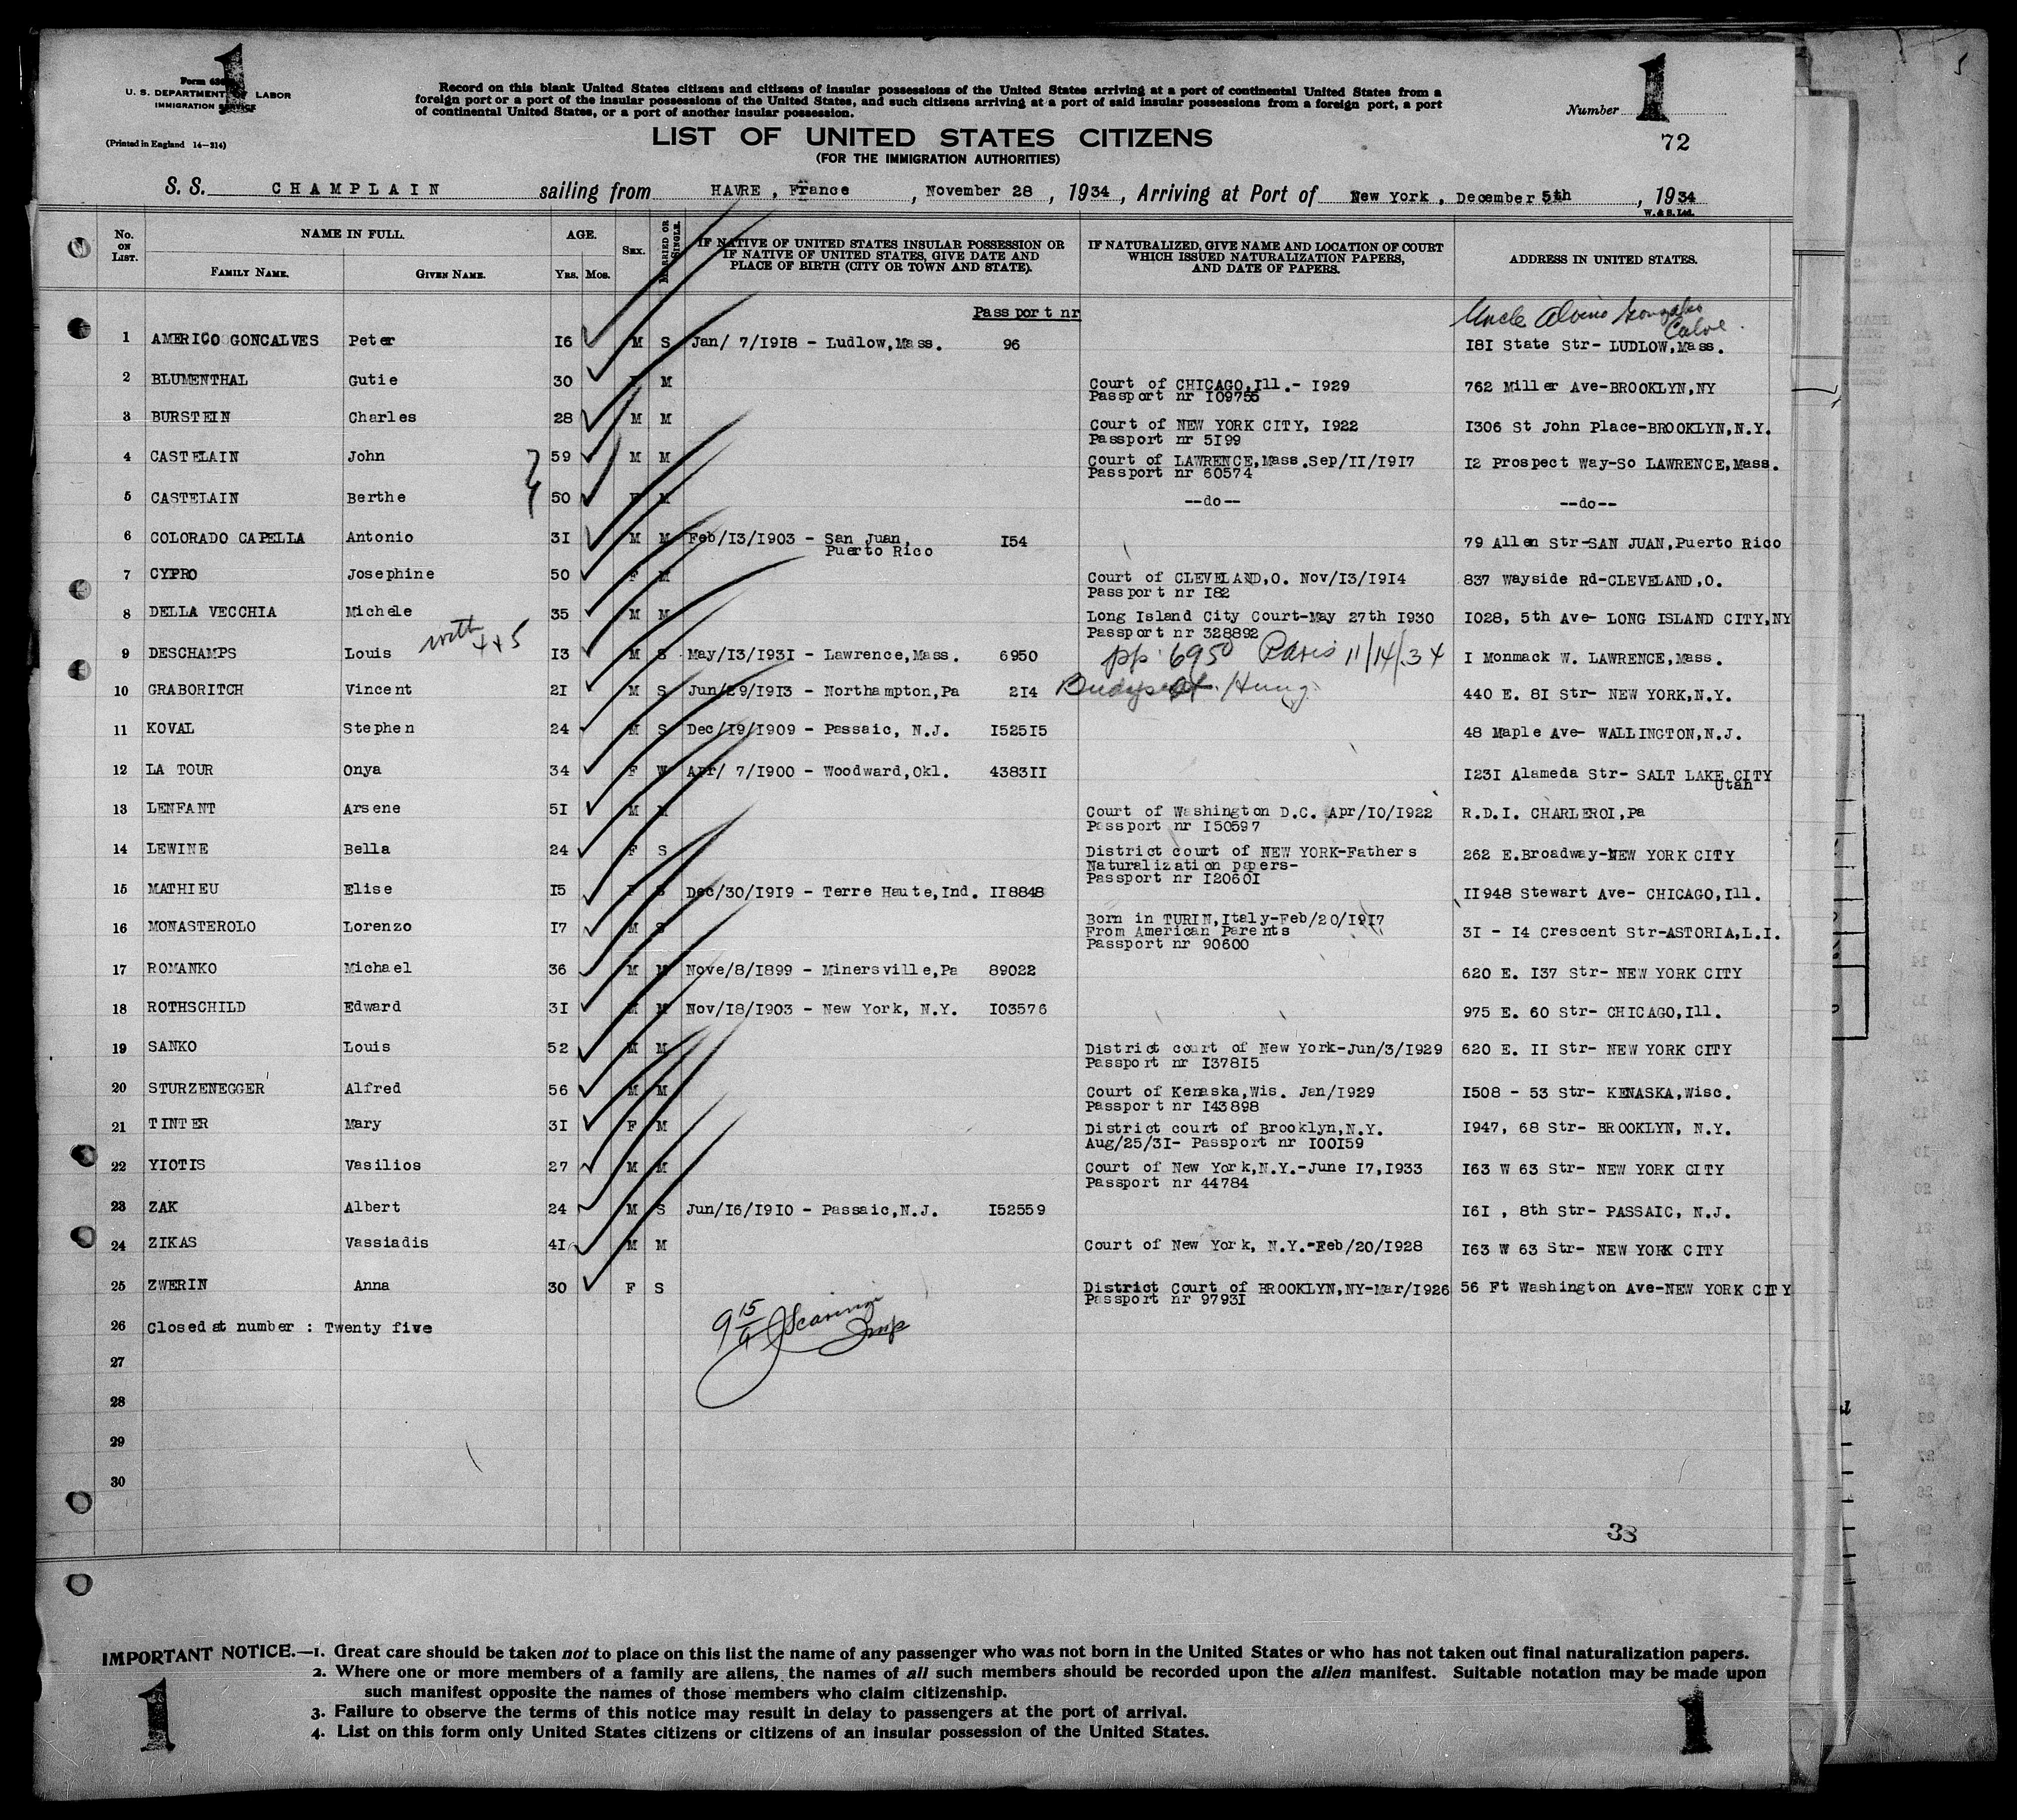 1
1
Form 630
U. S. DEPARTMENT OF LABOR
IMMIGRATION SERVICE
(Printed in England 14—314)
Record on this blank United States citizens and citizens of insular possessions of the United States arriving at a port of continental United States from a
foreign port or a port of the insular possessions of the United States, and such citizens arriving at a port of said insular possessions from a foreign port, a port
of continental United States, or a port of another insular possession.
Number
72
LIST OF UNITED STATES CITIZENS
(FOR THE IMMIGRATION AUTHORITIES)
S. S. CHAMPLAIN sailing from HAVRE, France, November 28, 1934, Arriving at Port of New York, December 5th, 1934
W. & S. Ltd.
No. ON LIST. NAME IN FULL. FAMILY NAME. GIVEN NAME. AGE. YRS. MOS. SEX. MARRIED OR SINGLE. IF NATIVE OF UNITED STATES INSULAR POSSESSION OR IF NATIVE OF UNITED STATES, GIVE DATE AND PLACE OF BIRTH (CITY OR TOWN AND STATE). IF NATURALIZED, GIVE NAME AND LOCATION OF COURT WHICH ISSUED NATURALIZATION PAPERS, AND DATE OF PAPERS. ADDRESS IN UNITED STATES.
Passport nr
Uncle Alvino Gonzales
1 AMERICO GONCALVES Peter I6 M S Jan/ 7/I9I8 - Ludlow,Mass. 96 I8I State Str- LUDLOW,Mass.
2 BLUMENTHAL Gutie 30 F M Court of CHICAGO,Ill.- I929 762 Miller Ave-BROOKLYN,NY
Passport nr I09755
3 BURSTEIN Charles 28 M M Court of NEW YORK CITY, I922 I306 St John Place-BROOKLYN,N.Y.
Passport nr 5I99
4 CASTELAIN John 59 M M Court of LAWRENCE,Mass.Sep/II/I9I7 I2 Prospect Way-So LAWRENCE,Mass.
Passport nr 60574
5 CASTELAIN Berthe 50 F M --do-- --do--
6 COLORADO CAPELLA Antonio 3I M M Feb/I3/I903 - San Juan, I54 79 Allen Str-SAN JUAN,Puerto Rico
Puerto Rico
7 CYPRO Josephine 50 F M Court of CLEVELAND,O. Nov/I3/I9I4 837 Wayside Rd-CLEVELAND,O.
Passport nr I82
8 DELLA VECCHIA Michele 35 M M Long Island City Court-May 27th I930 I028, 5th Ave- LONG ISLAND CITY,NY
Passport nr 328892
with 4+5
9 DESCHAMPS Louis I3 M S May/I3/I93I - Lawrence,Mass. 6950 pp. 6950 Paris 11/14/34 I Monmack W. LAWRENCE,Mass.
10 GRABORITCH Vincent 2I M S Jun/29/I9I3 - Northampton,Pa 2I4 Budapest Hung. 440 E. 8I Str- NEW YORK,N.Y.
11 KOVAL Stephen 24 M S Dec/I9/I909 - Passaic, N.J. I525I5 48 Maple Ave- WALLINGTON,N.J.
12 LA TOUR Onya 34 F W Apr/ 7/I900 - Woodward,Okl. 4383II I23I Alameda Str- SALT LAKE CITY
Utah
13 LENFANT Arsene 5I M M Court of Washington D.C. Apr/I0/I922 R.D.I. CHARLEROI,Pa
Passport nr I50597
14 LEWINE Bella 24 F S District court of NEW YORK-Fathers 262 E.Broadway-NEW YORK CITY
Naturalization papers-
Passport nr I2060I
15 MATHIEU Elise I5 F S Dec/30/I9I9 - Terre Haute,Ind. II8848 II948 Stewart Ave- CHICAGO,Ill.
16 MONASTEROLO Lorenzo I7 M S Born in TURIN,Italy-Feb/20/I9I7 3I - I4 Crescent Str-ASTORIA,L.I.
From American Parents
Passport nr 90600
17 ROMANKO Michael 36 M M Nove/8/I899 - Minersville,Pa 89022 620 E. I37 Str- NEW YORK CITY
18 ROTHSCHILD Edward 3I M M Nov/I8/I903 - New York, N.Y. I03576 975 E. 60 Str- CHICAGO,Ill.
19 SANKO Louis 52 M M District court of New York-Jun/3/I929 620 E. II Str- NEW YORK CITY
Passport nr I378I5
20 STURZENEGGER Alfred 56 M M Court of Kenaska,Wis. Jan/I929 I508 - 53 Str- KENASKA,Wisc.
Passport nr I43898
21 TINTER Mary 3I F M District court of Brooklyn,N.Y. I947, 68 Str- BROOKLYN, N.Y.
Aug/25/3I- Passport nr I00I59
22 YIOTIS Vasilios 27 M M Court of New York,N.Y.-June I7,I933 I63 W 63 Str- NEW YORK CITY
Passport nr 44784
23 ZAK Albert 24 M S Jun/I6/I9I0 - Passaic,N.J. I52559 I6I , 8th Str- PASSAIC, N.J.
24 ZIKAS Vassiadis 4I M M Court of New York, N.Y.-Feb/20/I928 I63 W 63 Str- NEW YORK CITY
25 ZWERIN Anna 30 F S District Court of BROOKLYN,NY-Mar/I926 56 Ft Washington Ave-NEW YORK CITY
Passport nr 9793I
26 Closed at number : Twenty five
27
28
29
30
38
IMPORTANT NOTICE.—1. Great care should be taken not to place on this list the name of any passenger who was not born in the United States or who has not taken out final naturalization papers.
2. Where one or more members of a family are aliens, the names of all such members should be recorded upon the alien manifest. Suitable notation may be made upon
such manifest opposite the names of those members who claim citizenship.
3. Failure to observe the terms of this notice may result in delay to passengers at the port of arrival.
4. List on this form only United States citizens or citizens of an insular possession of the United States.
1
1